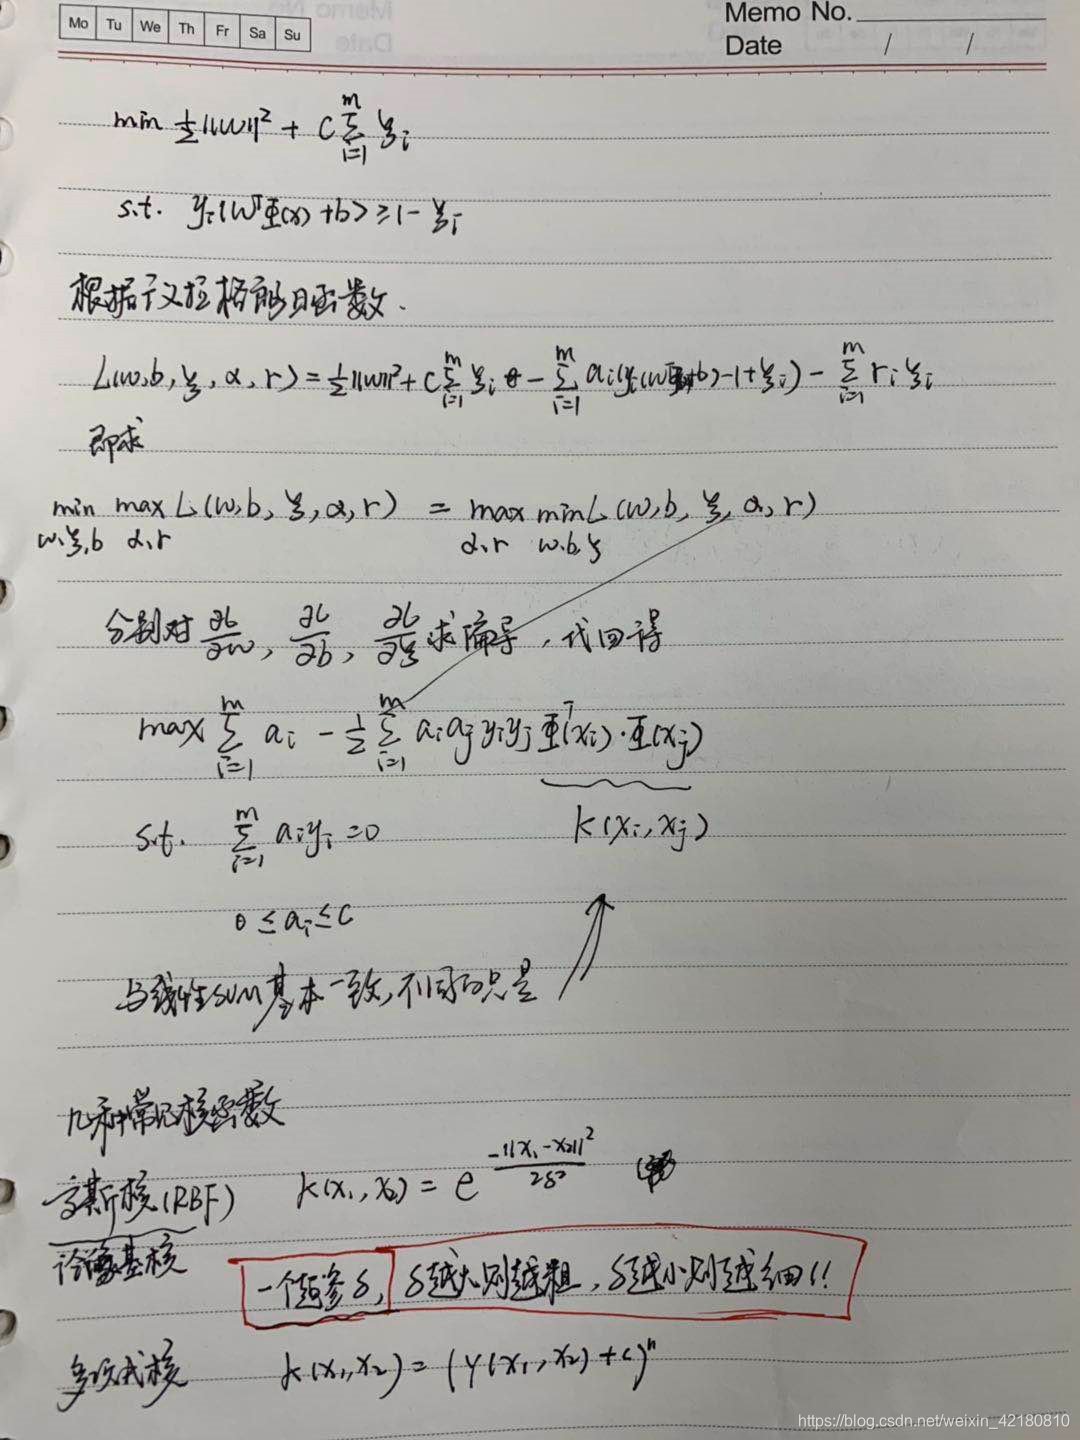 Mo Tu We Th Fr Sa Su
Memo No.
Date / /
min ½||W||² + C∑_{i=1}^{m} ξ_i
s.t. y_i(W^TΦ(x)+b) ≥ 1-ξ_i
根据广义拉格朗日函数.
L(w,b,ξ,α,r) = ½||w||² + C∑_{i=1}^{m} ξ_i - ∑_{i=1}^{m} a_i(y_i(w^TΦ(x)+b)-1+ξ_i) - ∑_{i=1}^{m} r_i ξ_i
即求
min_{w,ξ,b} max_{α,r} L(w,b,ξ,α,r) = max_{α,r} min_{w,b,ξ} L(w,b,ξ,α,r)
分别对 ∂L/∂w, ∂L/∂b, ∂L/∂ξ 求偏导,代回得
max ∑_{i=1}^{m} a_i - ½∑_{i=1}^{m} a_i a_j y_i y_j Φ^T(x_i)·Φ(x_j)
s.t. ∑_{i=1}^{m} a_i y_i = 0
K(x_i, x_j)
0 ≤ a_i ≤ C
与线性SVM基本一致,不同的只是
几种常见核函数
高斯核(RBF) K(x₁,x₂) = e^{-||x₁-x₂||²/2δ²}
径向基核
一个超参δ, δ越大则越粗,δ越小则越细!!
多项式核 K(x₁,x₂) = (γ(x₁,x₂)+c)^n
https://blog.csdn.net/weixin_42180810